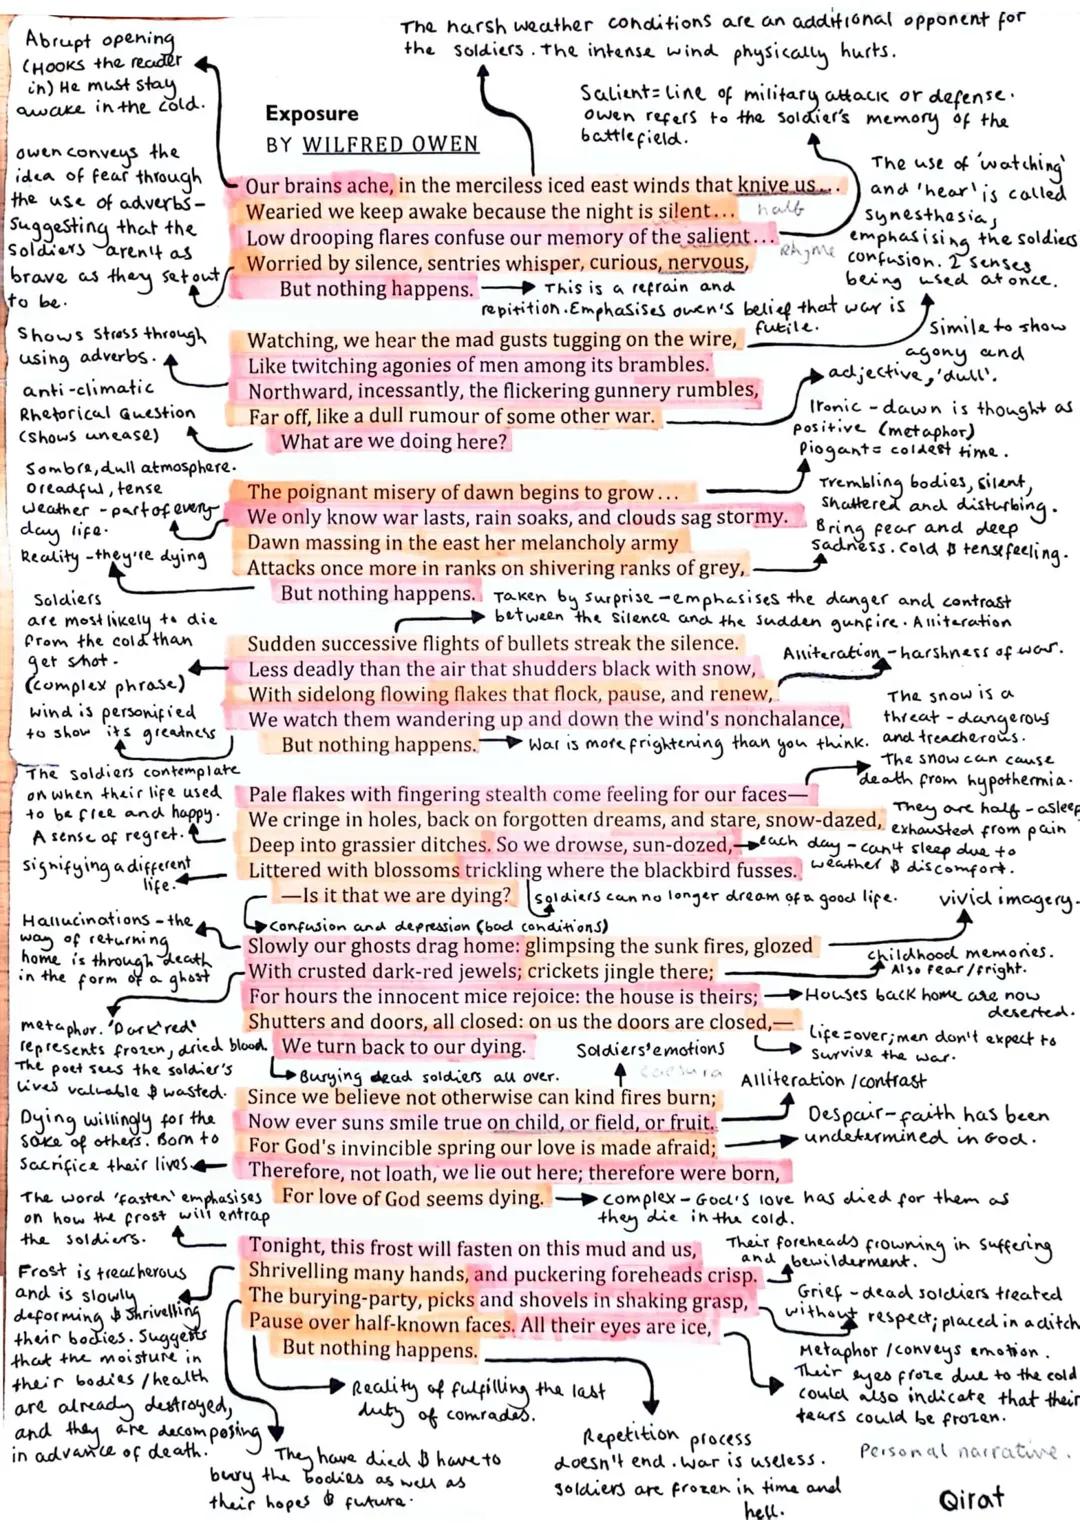 The harsh weather conditions are an additional opponent for
the soldiers. The intense wind physically hurts.
Abrupt opening
(HOOKS the reader
in) He must stay
awake in the cold.
Salient= Line of military attack or defense.
Owen refers to the soldier's memory of the
battlefield.
Exposure
BY WILFRED OWEN
Owen conveys the
idea of fear through
the use of adverbs-
Suggesting that the
Soldiers aren't as
brave as they set out
to be.
The use of 'watching'
and 'hear' is called
synesthesia,
emphasising the soldiers
confusion. 2 senses
being used at once.
Our brains ache, in the merciless iced east winds that knive us...
Wearied we keep awake because the night is silent...
half
Low drooping flares confuse our memory of the salient...
Rhyme
Worried by silence, sentries whisper, curious, nervous,
But nothing happens.
This is a refrain and
repitition. Emphasises owen's belief that war is
futile.
Shows stress through
using adverbs.
anti-climatic
Rhetorical Question
(shows unease)
Watching, we hear the mad gusts tugging on the wire,
Like twitching agonies of men among its brambles.
Northward, incessantly, the flickering gunnery rumbles,
Far off, like a dull rumour of some other war.
What are we doing here?
Simile to show
agony and
adjective, 'dull'.
Ironic - dawn is thought as
positive (metaphor)
Piogant= coldest time.
Sombre, dull atmosphere.
Dreadful, tense
weather - part of every
day life.
Reality - they're dying
The poignant misery of dawn begins to grow...
We only know war lasts, rain soaks, and clouds sag stormy.
Dawn massing in the east her melancholy army
Attacks once more in ranks on shivering ranks of grey,
But nothing happens.
Trembling bodies, silent,
Shattered and disturbing.
Bring fear and deep
sadness. Cold & tense feeling.
Taken by surprise - emphasises the danger and contrast
between the silence and the sudden gunfire. Alliteration
Soldiers
are most likely to die
from the cold than
get shot.
(complex phrase)
Wind is personified
to show its greatness
Sudden successive flights of bullets streak the silence.
Less deadly than the air that shudders black with snow,
With sidelong flowing flakes that flock, pause, and renew,
We watch them wandering up and down the wind's nonchalance,
But nothing happens.
War is more frightening than you think.
Alliteration - harshness of war.
The snow is a
threat - dangerous
and treacherous.
The snow can cause
death from hypothermia.
The soldiers contemplate
on when their life used
to be free and happy.
A sense of regret.
Signifying a different
life.
Pale flakes with fingering stealth come feeling for our faces—
We cringe in holes, back on forgotten dreams, and stare, snow-dazed,
Deep into grassier ditches. So we drowse, sun-dozed,
Littered with blossoms trickling where the blackbird fusses.
—Is it that we are dying?
They are half-asleep
exhausted from pain
each day - can't sleep due to
weather & discomfort.
soldiers can no longer dream of a good life.
vivid imagery.
Confusion and depression (bad conditions)
Hallucinations - the
way of returning
home is through death
in the form of a ghost
Slowly our ghosts drag home: glimpsing the sunk fires, glozed
With crusted dark-red jewels; crickets jingle there;
For hours the innocent mice rejoice: the house is theirs;
Shutters and doors, all closed: on us the doors are closed,—
We turn back to our dying.
childhood memories.
Also fear/fright.
Houses back home are now
deserted.
Life=over; men don't expect to
survive the war.
metaphor. 'Dark red'
represents frozen, dried blood.
The poet sees the soldier's
lives valuable & wasted.
Burying dead soldiers all over.
Soldiers' emotions
caesura
Alliteration / contrast
Dying willingly for the
sake of others. Born to
Sacrifice their lives
Since we believe not otherwise can kind fires burn;
Now ever suns smile true on child, or field, or fruit.
For God's invincible spring our love is made afraid;
Therefore, not loath, we lie out here; therefore were born,
For love of God seems dying.
Despair - faith has been
undetermined in God.
complex - God's love has died for them as
they die in the cold.
The word 'fasten' emphasises
on how the frost will entrap
the soldiers.
Tonight, this frost will fasten on this mud and us,
Shrivelling many hands, and puckering foreheads crisp.
The burying-party, picks and shovels in shaking grasp,
Pause over half-known faces. All their eyes are ice,
But nothing happens.
Their foreheads frowning in suffering
and bewilderment.
Grief - dead soldiers treated
without respect; placed in a ditch
Metaphor / conveys emotion.
Their eyes froze due to the cold
could also indicate that their
tears could be frozen.
Frost is treacherous
and is slowly
deforming & Shrivelling
their bodies. Suggests
that the moisture in
their bodies / health
are already destroyed,
and they are decomposing
in advance of death.
Reality of fulfilling the last
duty of comrades.
They have died & have to
bury the bodies as well as
their hopes & future.
Repetition process
doesn't end. War is useless.
Soldiers are frozen in time and
hell.
Personal narrative.
Qirat